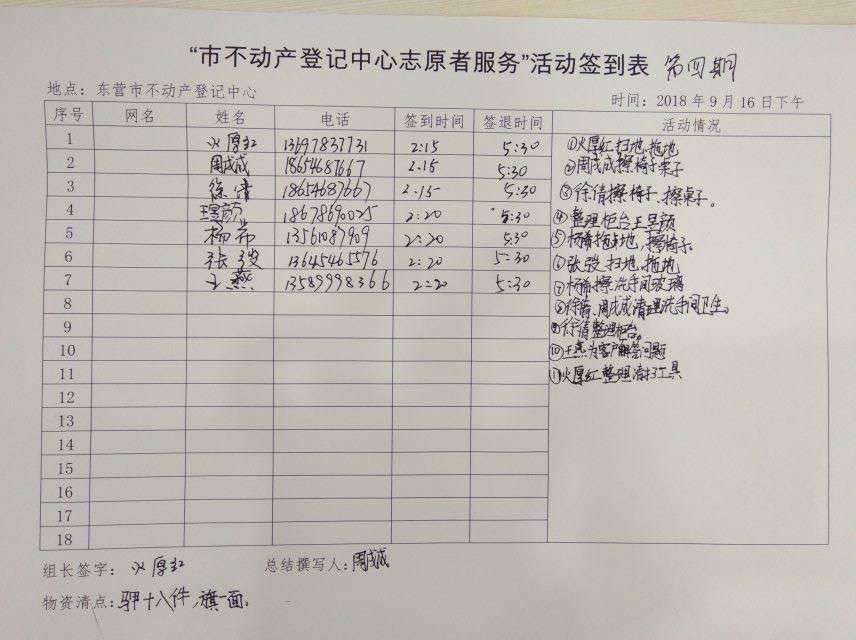 “市不动产登记中心志原者服务”活动签到表 第四期
地点：东营市不动产登记中心
时间：2018年9月16日下午
序号 网名 姓名 电话 签到时间 签退时间 活动情况
1 火厚红 13697837731 2:15 5:30
2 周成成 18654687667 2.15 5:30
3 徐倩 18654687667 2.15 5:30
4 王昱颜 18678690025 2:20 5:30
5 杨希 13561087909 2:20 5:30
6 张 13645465576 2:20 5:30
7 王燕 13589998366 2:20 5:30
8
9
10
11
12
13
14
15
16
17
18
①火厚红扫地、拖地
②周成成擦椅子桌子
③徐倩擦椅子、擦桌子。
④整理柜台王昱颜
⑤杨希拖地，擦椅子
⑥张 扫地、拖地
⑦杨希擦洗手间玻璃
⑧徐倩、周成成清理洗手间卫生。
⑨徐倩整理柜台。
⑩王燕为客户解答问题
⑪火厚红整理清扫工具
组长签字：火厚红
总结撰写人：周成成
物资清点：马甲十八件，旗一面。